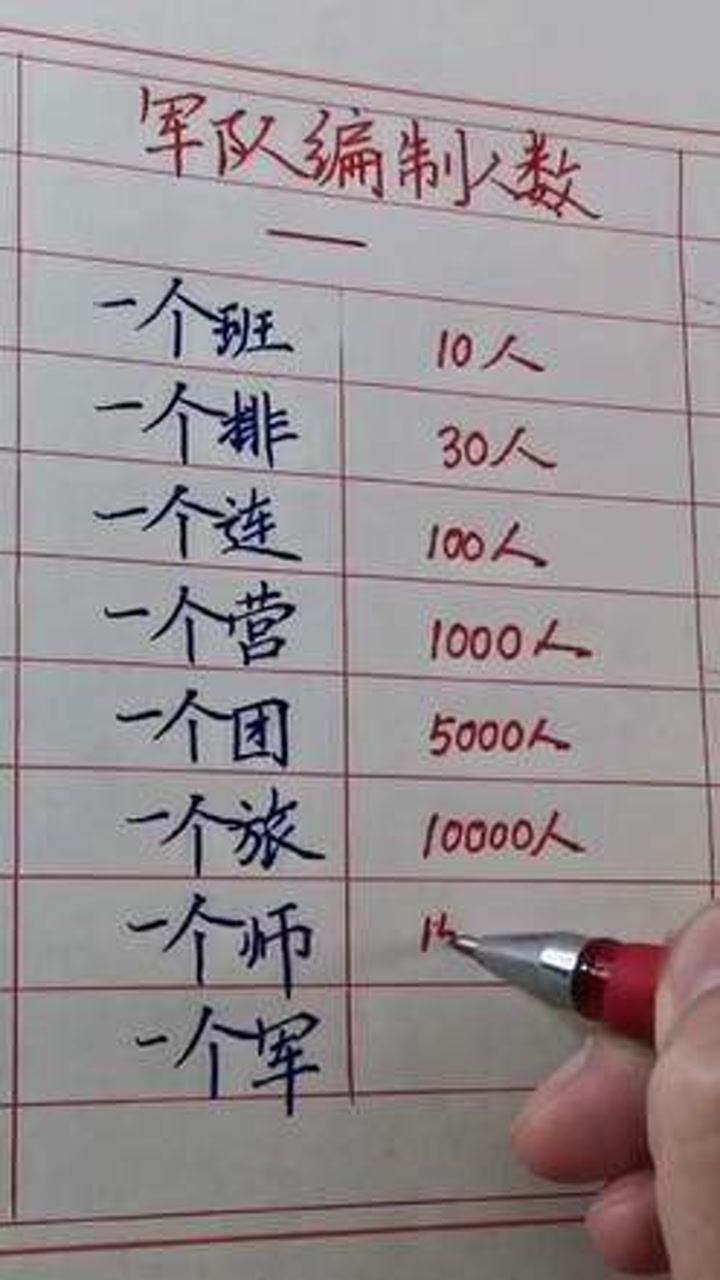 军队编制人数
一个班 10人
一个排 30人
一个连 100人
一个营 1000人
一个团 5000人
一个旅 10000人
一个师
一个军